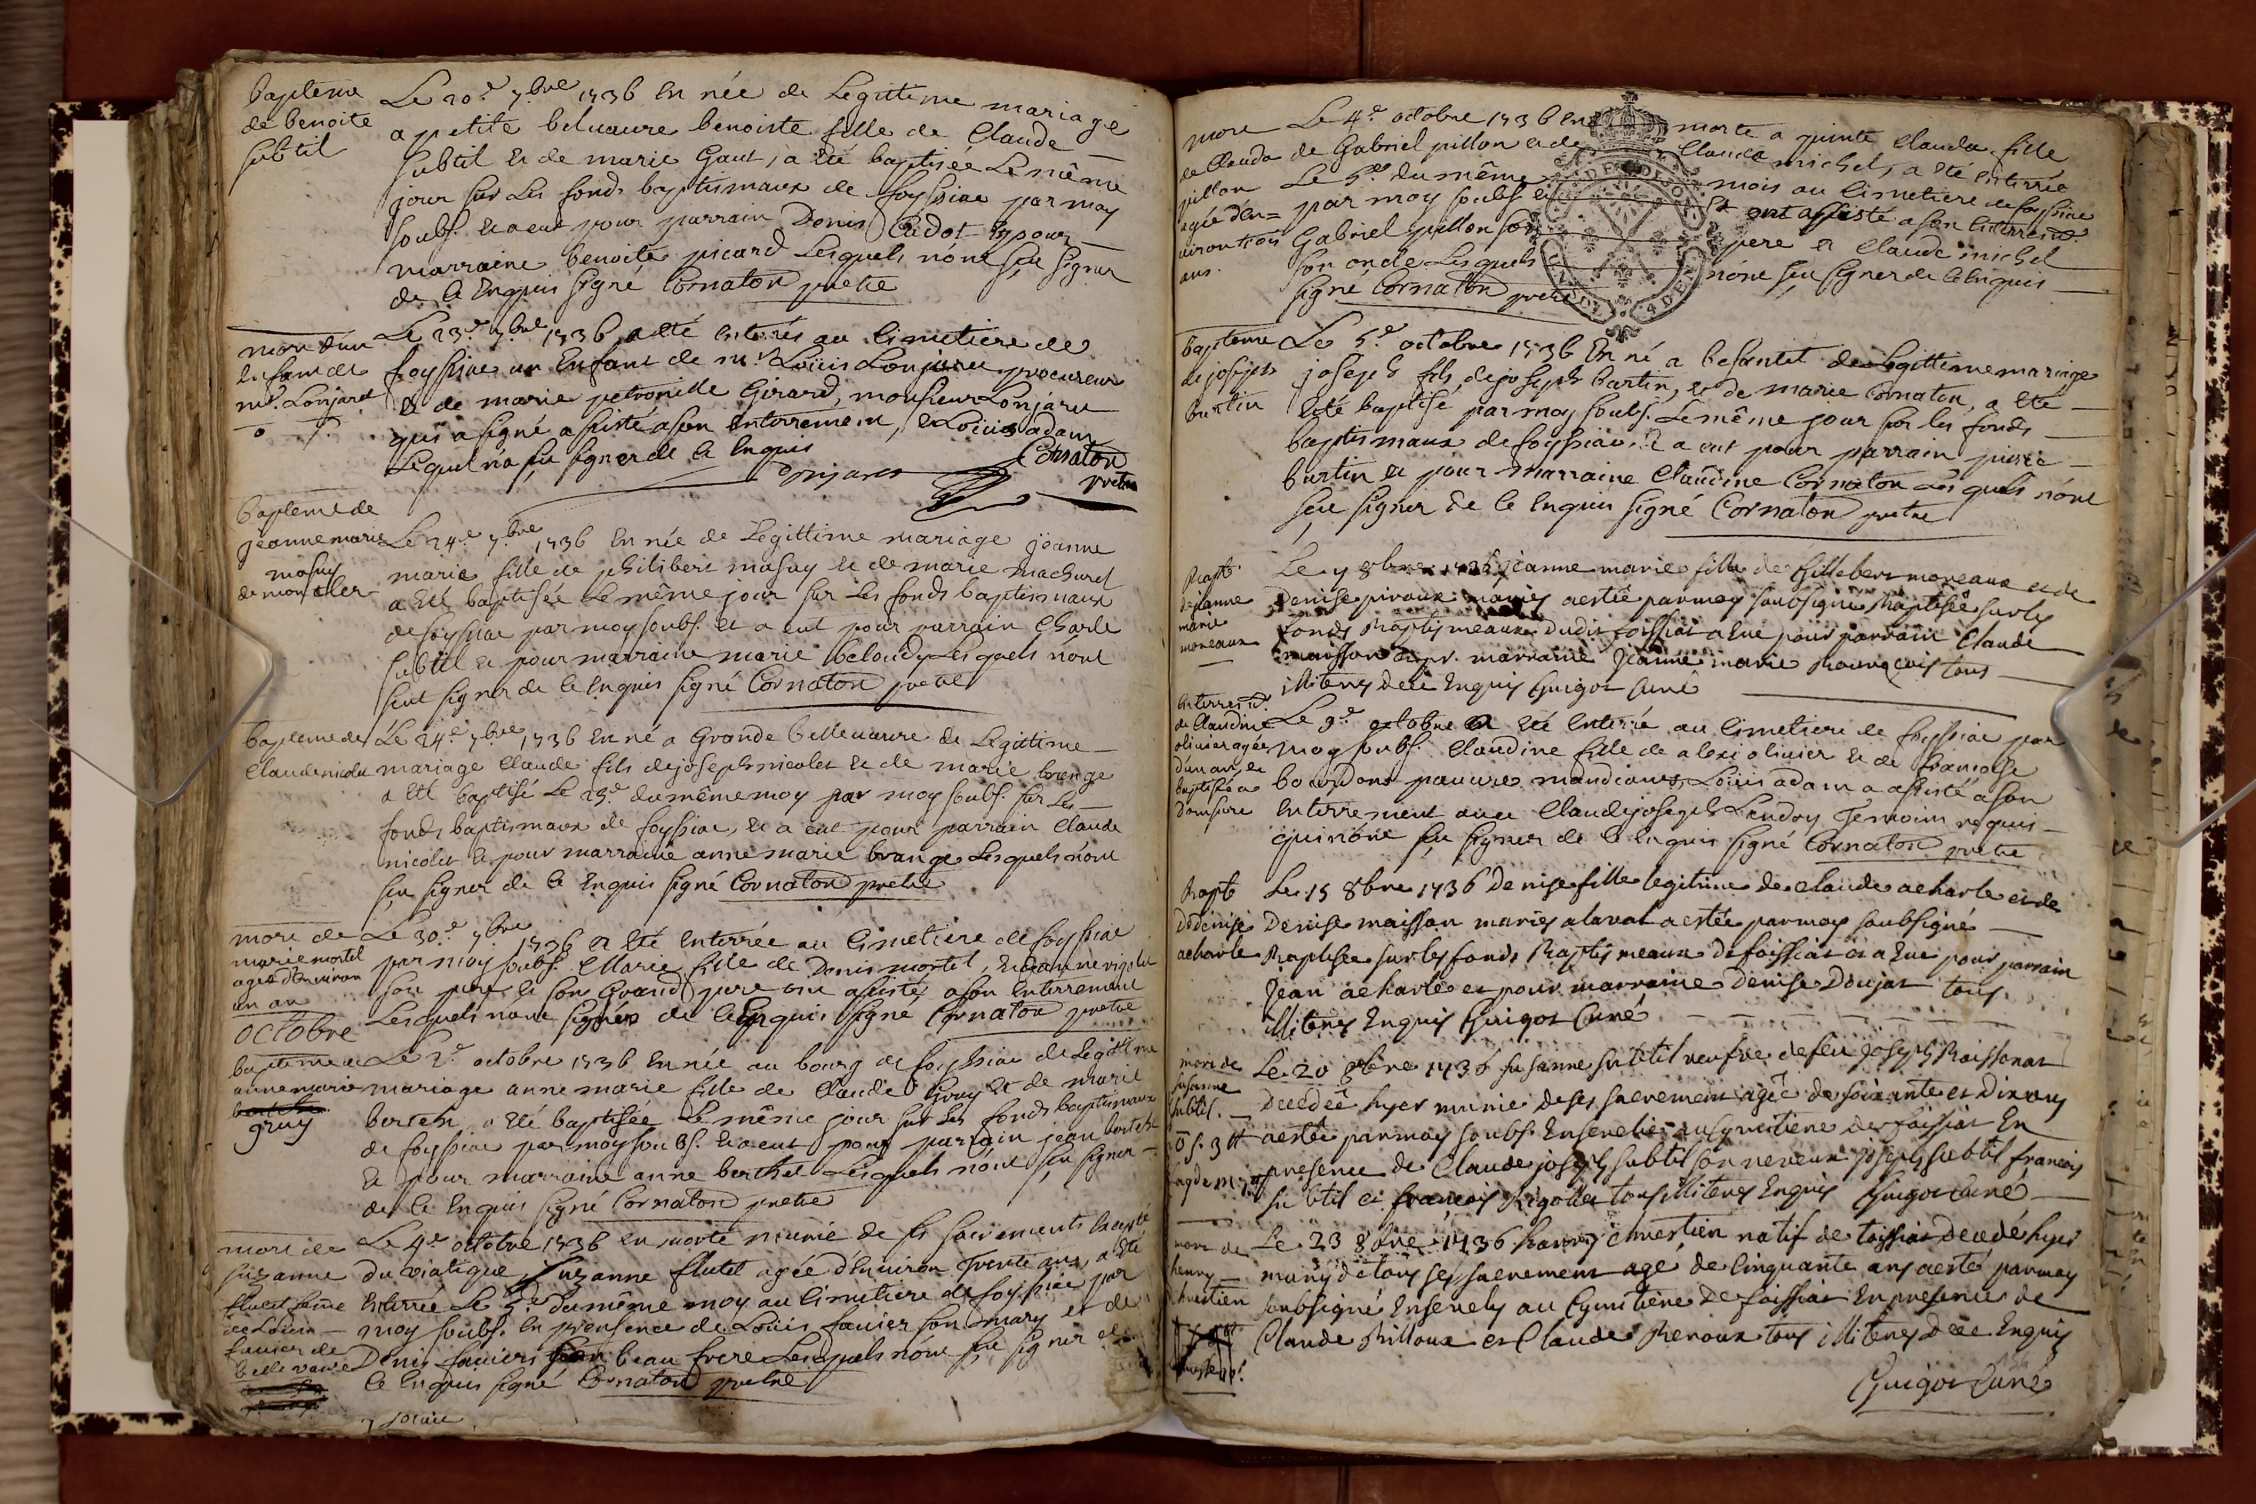 bapteme
de benoite
subtil
Le 20.e 7.bre 1736 en née de Legittime mariage
a petite belvavre benoiste fille de Claude
subtil et de marie Gaut, a eté baptisée Le même
jour sur Les fonds baptismaux de foyssiac par moy
soubs. et a eut pour parrain Denis Cadot et pour
marraine benoite picard Lesquels n'ont sçu signer
de ce Enquis signé Cornaton pretre
mort d'un
Enfant de
mr. Lonjaret
Le 23.e 7.bre 1736 a eté enterré au Cimetiere de
foyssiac un Enfant de mr Loüis Lonjaret procureur
et de marie petronille Girard, monsieur Lonjaret
qui a signé a assisté a son Enterrement, et Loüis adam
Lequel n'a sçu signer de ce Enquis
Lonjaret Cornaton
pretre
bapteme de
jeanne marie
masuy
de montcler
Le 24.e 7.bre 1736 en née de Legittime mariage jeanne
marie fille de philibert masuy et de marie machuret
a eté baptisée Le même jour sur Les fonds baptismaux
de foyssiac par moy soubs. et a eut pour parrain Charle
subtil et pour marraine marie beloudy Lesquels n'ont
sçut signer de ce Enquis signé Cornaton pretre
bapteme de
Claude nicolet
Le 24.e 7.bre 1736 en né a Grande bellevavre de Legittime
mariage Claude fils de joseph nicolet et de marie brange
a eté baptisé Le 25.e du même moy par moy soubs. sur Les
fonds baptismaux de foyssiac, et a eut pour parrain Claude
nicolet et pour marraine anne marie brange Lesquels n'ont
sçu signer de ce Enquis signé Cornaton pretre
mort de
marie mortel
agée d'Environ
un an
Le 30.e 7.bre 1736 a eté Enterrée au Cimetiere de foyssiac
par moy soubs. Marie fille de Denis mortel, et jeanne rigolet
son pere et son Grand pere ont assistés a son Enterrement
Lesquels n'ont signer de ce Enquis signé Cornaton pretre
octobre
bapteme de
anne marie
gruy
Le 2.e octobre 1736 en née au bourg de foyssiac de Legittime
mariage anne marie fille de Claude Gruy et de marie
bertet a eté baptisée Le même jour sur Les fonds baptismaux
de foyssiac par moy soubs. et a eut pour parrain jean bertet
et pour marraine anne berthet Lesquels n'ont sçu signer
de ce Enquis signé Cornaton pretre
mort de
suzanne
flutet fame
de Loüis
favier de
bellevavre
Le 4.e octobre 1736 en morte munie de ses sacrements
du viatique, Suzanne flutet agée d'Environ trente ans, a eté
Enterrée Le 5.e du même moy au Cimetiere de foyssiac par
moy soubs. en presence de Loüis favier son mary et de
Denis faviers beau frere Lesquels n'ont sçu signer de
ce Enquis signé Cornaton pretre
mort
de Claude
pillon
agée d'en=
viron trois
ans.
Le 4.e octobre 1736 en morte a quinte Claude fille
de Gabriel pillon et de Claude michel, a eté enterrée
Le 5.e du même mois au Cimetiere de foyssiac
par moy soubs. et ont assisté a son Enterremt.
Gabriel pillon son pere et Claude michel
son oncle Lesquels n'ont sçu signer de ce Enquis
signé Cornaton pretre
bapteme
de joseph
burtin
Le 5.e octobre 1736 en né a besentet de Legittime mariage
joseph fils de joseph burtin, et de marie Cornaton, a eté
eté baptisé par moy soubs. Le même jour sur les fonds
baptismaux de foyssiac et a eut pour parrain pierre
burtin et pour marraine Claudine Cornaton Lesquels n'ont
sçu signer de ce Enquis signé Cornaton pretre
Bapt.
de jeanne
marie
moreaux
Le 7 8bre 1736 jeanne marie fille de Gillebert moreaux et de
Denise piroux mariés a esté par moy soubsigné Baptisée sur les
fonds Baptismeaux dudit foissiat a eue pour parrain Claude
maisson et pr. marraine Jeanne marie Bourgeois tous
illiterés de ce Enquis Guigot Curé
Enterremt.
de Claudine
olivier agée
d'un an, et
baptisée a
Domsure
Le 9.e octobre a eté Enterrée au Cimetiere de foyssiac par
moy soubs. Claudine fille de alexi olivier et de francoise
bourdon pauvres mandiants, Loüis adam a assisté a son
Enterrement avec Claude joseph Landoy Temoins requis
qui n'ont sçu signer de ce Enquis signé Cornaton pretre
Bapt
De denise
acharle
Le 15 8bre 1736 Denise fille legitime de Claude acharle et de
Denise maisson mariés a laval a estée par moy soubsigné
Baptisée sur les fonds Baptismeaux de foissiat et a eue pour parrain
Jean acharle et pour marraine Denise Doujat tous
illiterés Enquis Guigot Curé
mort de
susanne
subtil.
Le 20 8bre 1736 susanne subtil veufve de feu Joseph Boissonat
Decedée hyer munie de ses sacrement agée de soixante et dix ans
a estée par moy soubs. Ensevelie au Cymitiere de foissiat En
presence de Claude joseph subtil son neveux joseph subtil francois
subtil et francois Rigollet tous illiterés Enquis Guigot Curé
mort de
henry
chrestien
Le 23 8bre 1736 henry chrestien natif de foissiat decedé hyer
muny de tous ses sacrement agé de Cinquante ans a esté par moy
soubsigné Ensevely au Cymitiere de foissiat En presence de
Claude Billoux et Claude Renoux tous illiterés de ce Enquis
Guigot Curé